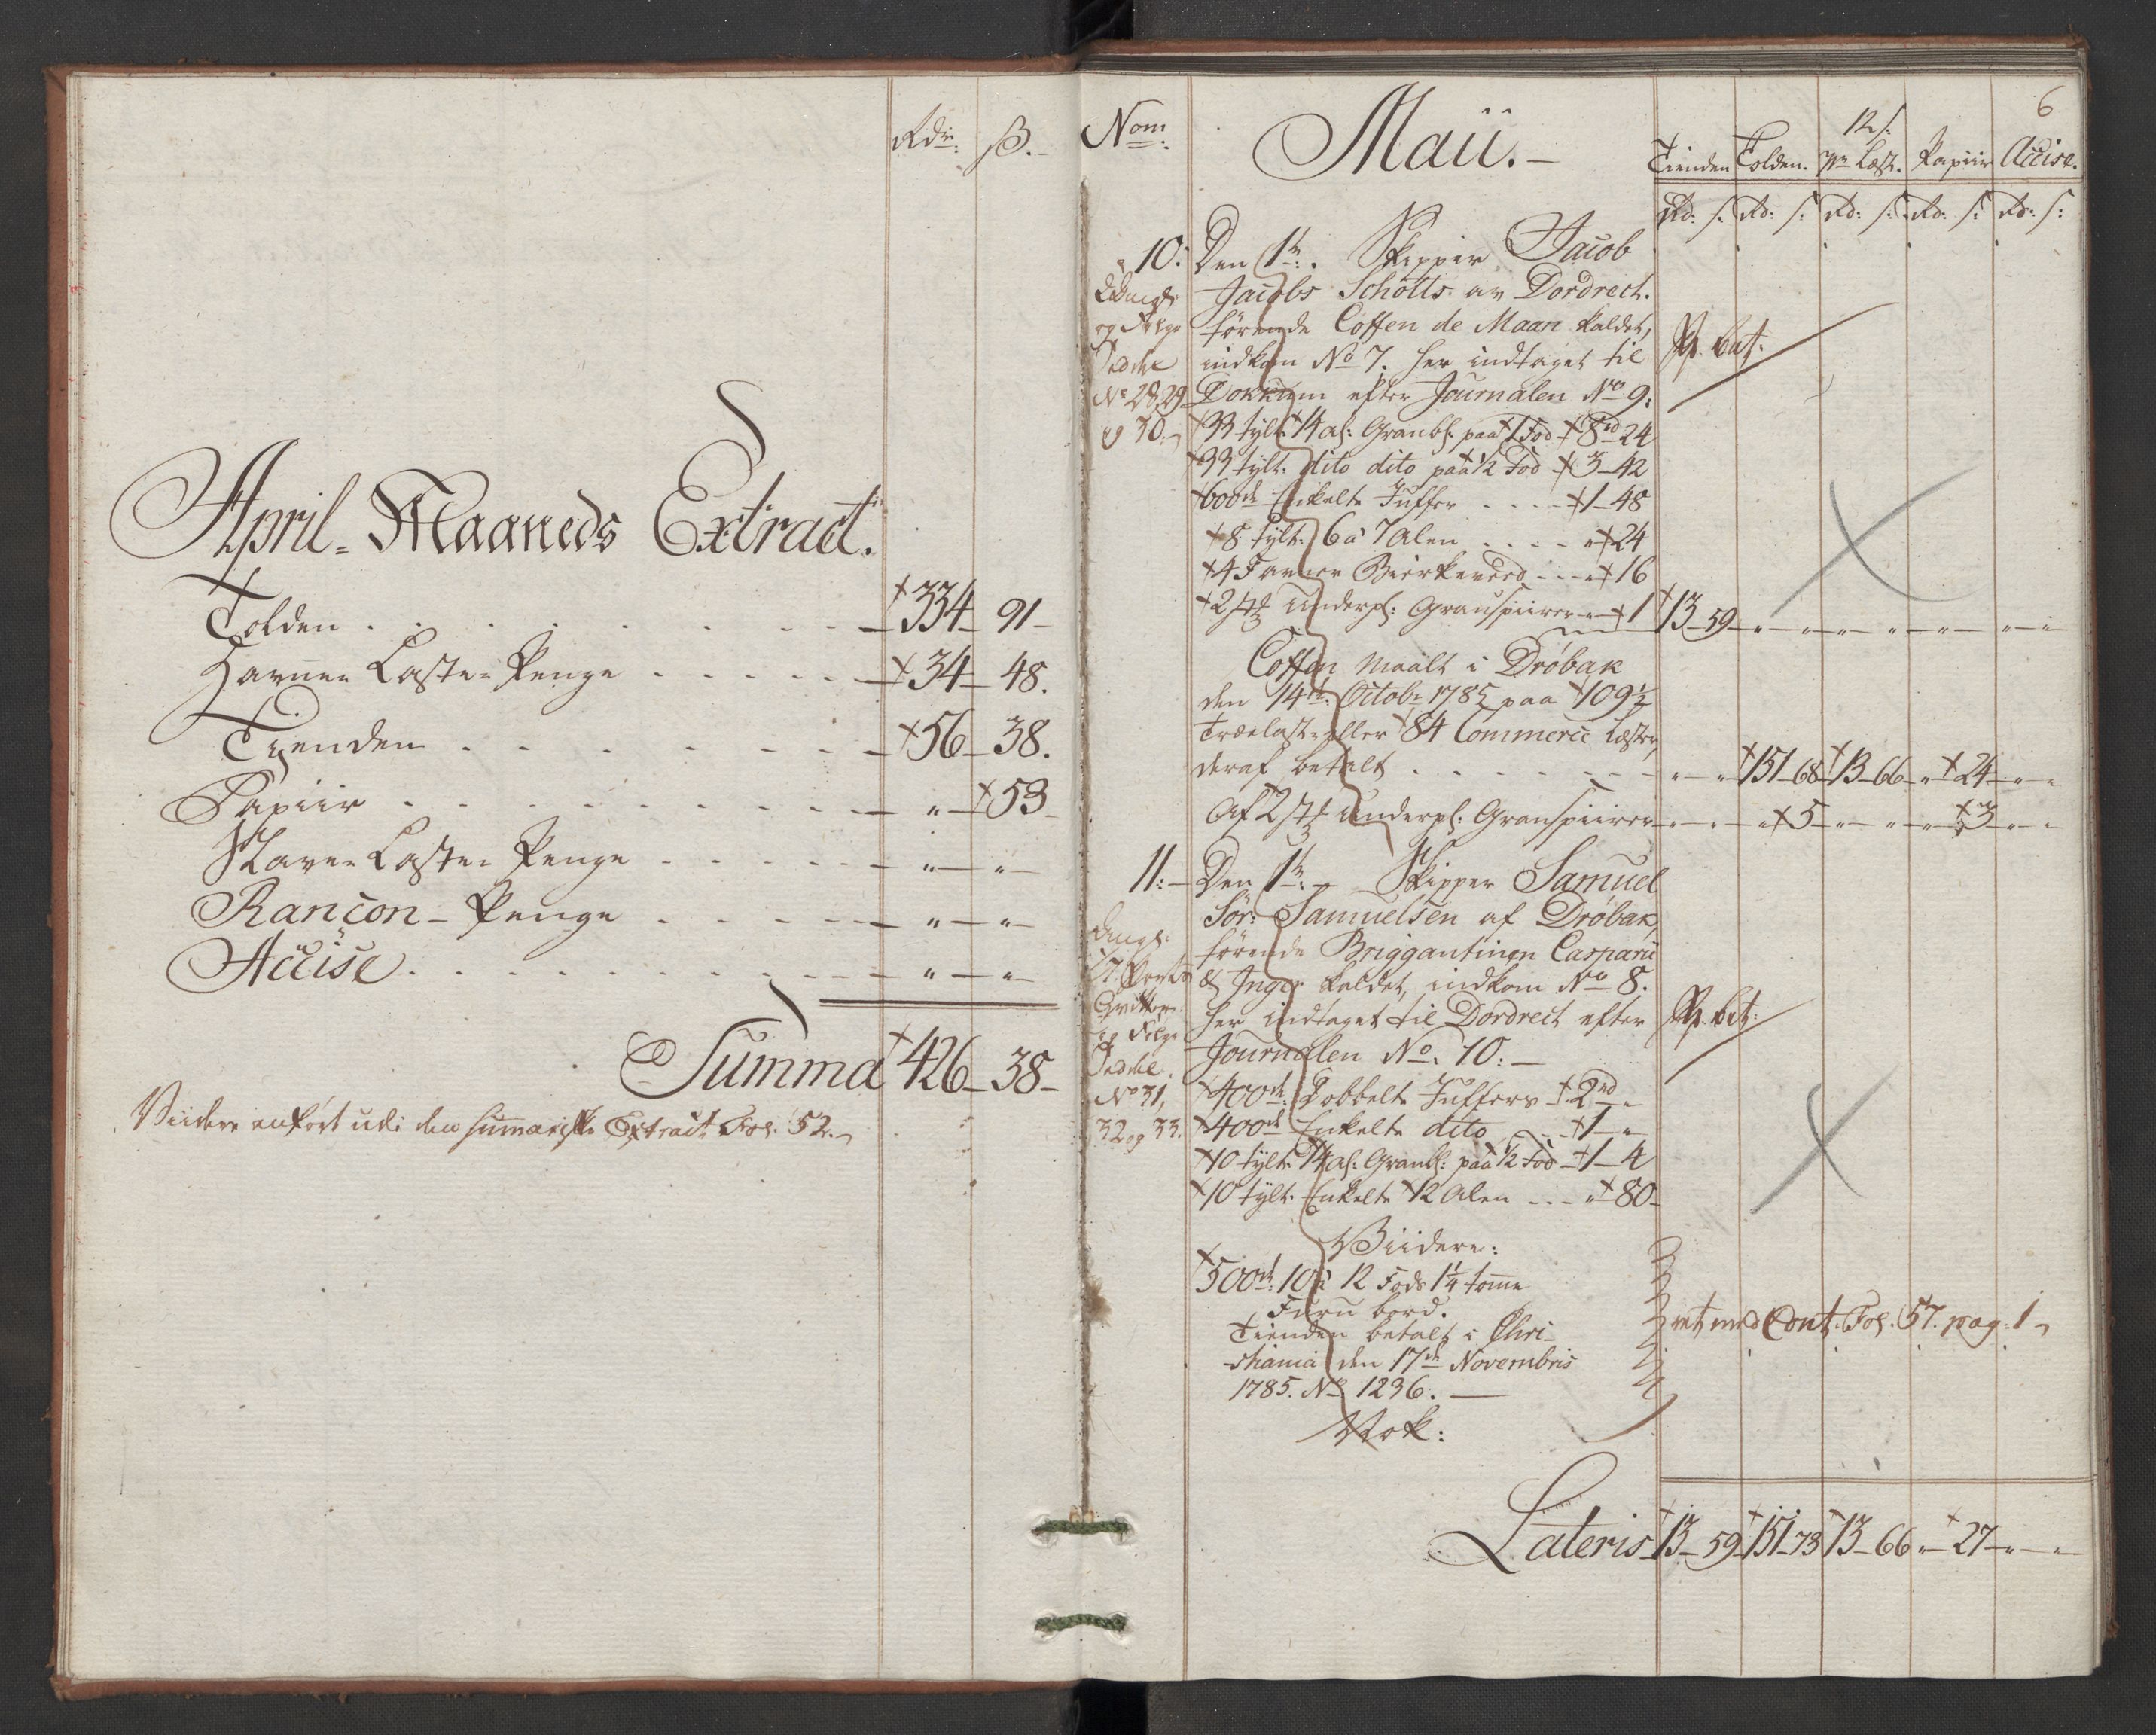 Rdr: ß.
April-Maaneds Extract.
Tolden . . . . 334 91
Havne Laste-Penge . . . . 34 48.
Tienden . . . . 56 38.
Papiir . . . . " 53
Slave Laste-Penge . . . . " "
Rançon-Penge . . . . " "
Accise . . . . " "
Summa 426 38
Viidere anført udi den Summariske Extract Fol. 52.
6
Nom: Maii. Tienden Tolden. 12 s: pr Læst. Papiir Accise.
Rd: s. Rd: s: Rd: s: Rd: s: Rd: s:
10: Den 1te: Skipper Jacob
Jacobs Schotts av Dordrecht.
førende Coffen de Maan kaldet,
indkom No 7. her indtaget til
Dokkum efter Journalen No 9:
og Følge Seddel No 28, 29 og 30.
33 tylt. 14 al: Granbl: paa 1 Fod 8rd 24
33 tylt. dito dito paa ½ Fod 3 42
600de Enkelte Juffer . . . . 1 48
8 tylt. 6 à 7 Alen . . . . " 24
4 Favner Birkeveed . . . " 16
2 st Underpl: Granspiirer " 1 13 59
Coffen Maalt i Drøbak
den 14de: Octobr 1785 paa 109½
Trælast eller 84 Commerce Læster,
deraf betalt . . . . 151 68 13 66 " 24 " "
Af 2 st Underpl: Granspiirer " " " 5 " " " 3 " "
11: Den 1te: Skipper Samuel
Sør: Samuelsen af Drøbak,
førende Briggantinen Casparii
& Inger kaldet, indkom No 8.
her indtaget til Dordrect efter
Journalen No. 10:
og Følge Seddel No 31, 32 og 33.
400de: Dobbelte Juffers 2rd "
400de Enkelte dito . . . 1 "
10 tylt 14 al: Granbl: paa ½ Fod 1 4
10 tylt. Enkelte 12 Alen . . . " 80
Viidere:
500de: 10 à 12 Fods 1¼ tomme
Furu bord.
Tienden betalt i Chri-
stiania den 17de Novembris
1785. No 1236.
Cont. Fol. 57. pag: 1
Nok:
Lateris 13 59 151 73 13 66 " 27 " "